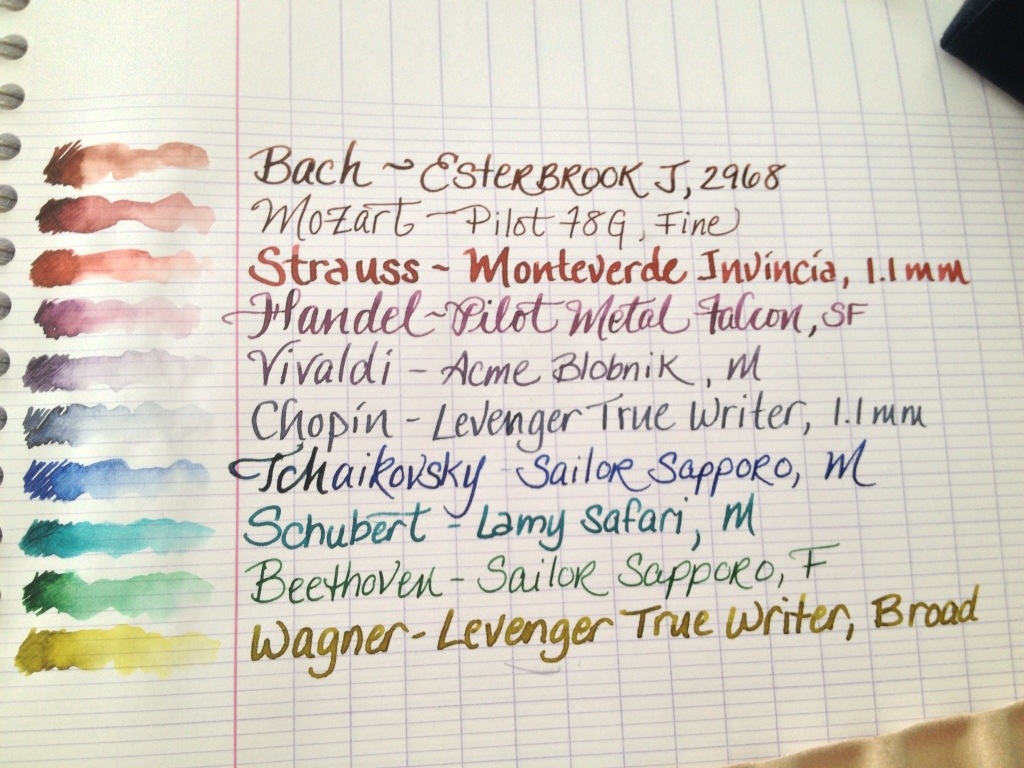 Bach ~ Esterbrook J, 2968
Mozart - Pilot 78G, Fine
Strauss ~ Monteverde Invincia, 1.1mm
Handel ~ Pilot Metal Falcon, SF
Vivaldi - Acme Blobnik, M
Chopin - Levenger True Writer, 1.1mm
Tchaikovsky - Sailor Sapporo, M
Schubert - Lamy Safari, M
Beethoven - Sailor Sapporo, F
Wagner - Levenger True Writer, Broad